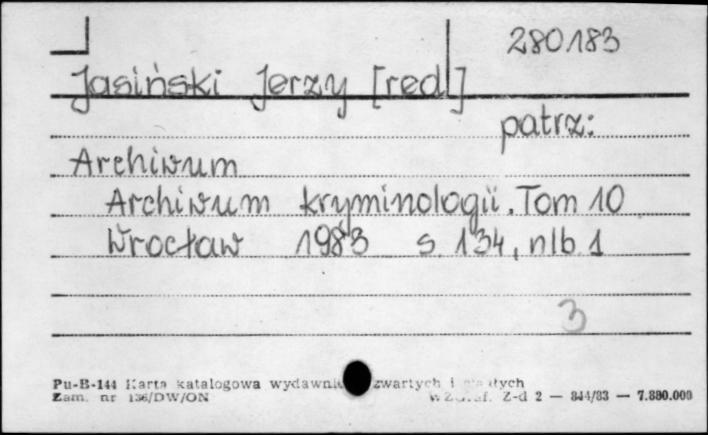 280183
Jasiński Jerzy [red]
patrz:
Archiwum
Archiwum kryminologii. Tom 10
Wrocław 1983 s. 134, nlb. 1
3
Pu-B-144 Karta katalogowa zwartych i
Zam. nr 136/DW/ON Z-d 2 — 844/83 — 7.880.000